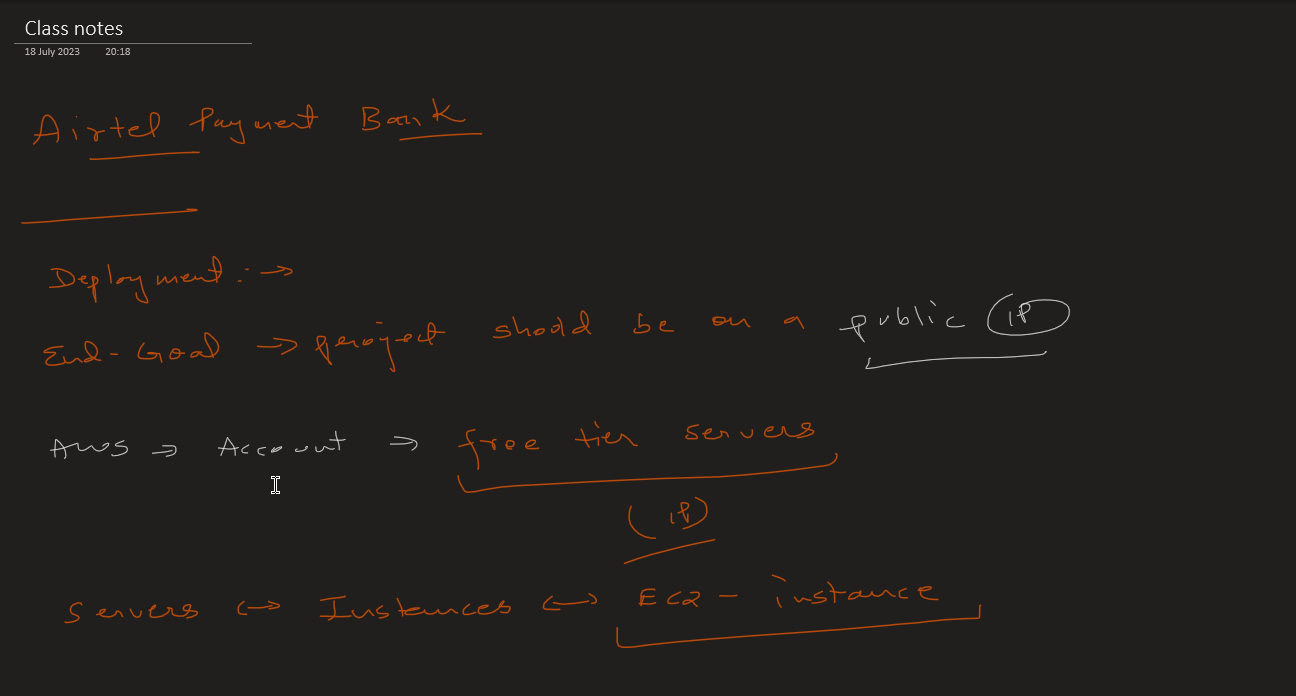 Class notes
18 July 2023 20:18
Airtel Payment Bank
Deployment :→
End-Goal → project should be on a public IP
AWS → Account → free tier servers
(IP)
Servers ↔ Instances ↔ EC2 - instance